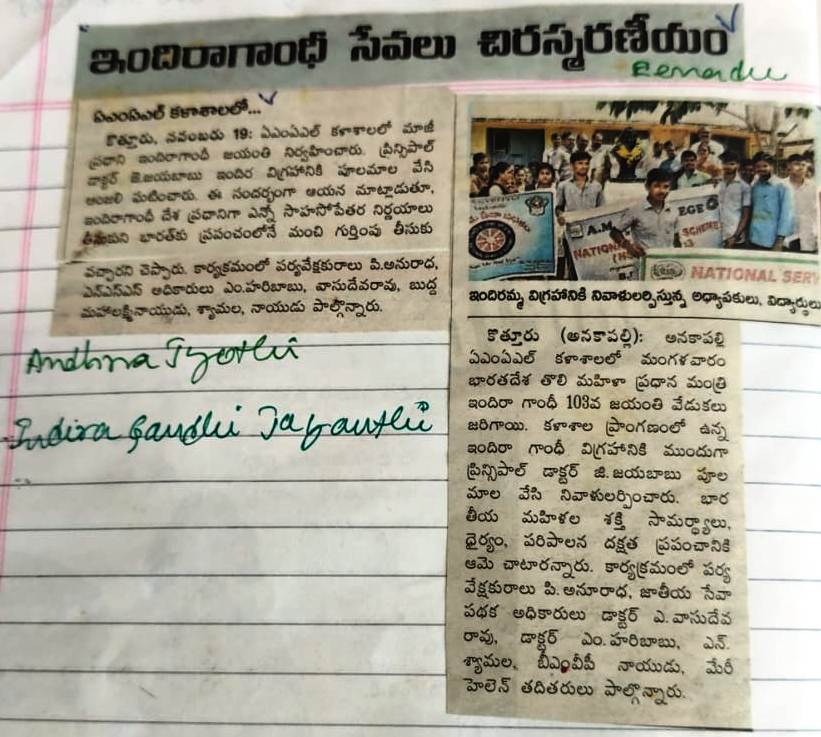 ఇందిరాగాంధీ సేవలు చిరస్మరణీయం
Eenadu
ఏఎంఏఎల్ కళాశాలలో...
కొత్తూరు, నవంబరు 19: ఏఎంఏఎల్ కళాశాలలో మాజీ
ప్రధాని ఇందిరాగాంధీ జయంతి నిర్వహించారు. ప్రిన్సిపాల్
డాక్టర్ జి.జయబాబు ఇందిర విగ్రహానికి పూలమాల వేసి
అంజలి ఘటించారు. ఈ సందర్భంగా ఆయన మాట్లాడుతూ,
ఇందిరాగాంధీ దేశ ప్రధానిగా ఎన్నో సాహసోపేతర నిర్ణయాలు
తీసుకుని భారత్‌కు ప్రపంచంలోనే మంచి గుర్తింపు తీసుకు
వచ్చారని చెప్పారు. కార్యక్రమంలో పర్యవేక్షకురాలు పి.అనురాధ,
ఎన్ఎస్ఎస్ అధికారులు ఎం.హరిబాబు, వాసుదేవరావు, బుద్ధ
మహాలక్ష్మీనాయుడు, శ్యామల, నాయుడు పాల్గొన్నారు.
Andhra Jyothi
Indira Gandhi Jayanthi
A.M
NATIONAL
EGE
SCHEME
NATIONAL SERV
ఇందిరమ్మ విగ్రహానికి నివాళులర్పిస్తున్న అధ్యాపకులు, విద్యార్థులు
కొత్తూరు (అనకాపల్లి): అనకాపల్లి
ఏఎంఏఎల్ కళాశాలలో మంగళవారం
భారతదేశ తొలి మహిళా ప్రధాన మంత్రి
ఇందిరా గాంధీ 103వ జయంతి వేడుకలు
జరిగాయి. కళాశాల ప్రాంగణంలో ఉన్న
ఇందిరా గాంధీ విగ్రహానికి ముందుగా
ప్రిన్సిపాల్ డాక్టర్ జి.జయబాబు పూల
మాల వేసి నివాళులర్పించారు. భార
తీయ మహిళల శక్తి సామర్థ్యాలు,
ధైర్యం, పరిపాలన దక్షత ప్రపంచానికి
ఆమె చాటారన్నారు. కార్యక్రమంలో పర్య
వేక్షకురాలు పి.అనూరాధ, జాతీయ సేవా
పథక అధికారులు డాక్టర్ ఎ.వాసుదేవ
రావు, డాక్టర్ ఎం.హరిబాబు, ఎన్.
శ్యామల, బీఎంవీపీ నాయుడు, మేరీ
హెలెన్ తదితరులు పాల్గొన్నారు.